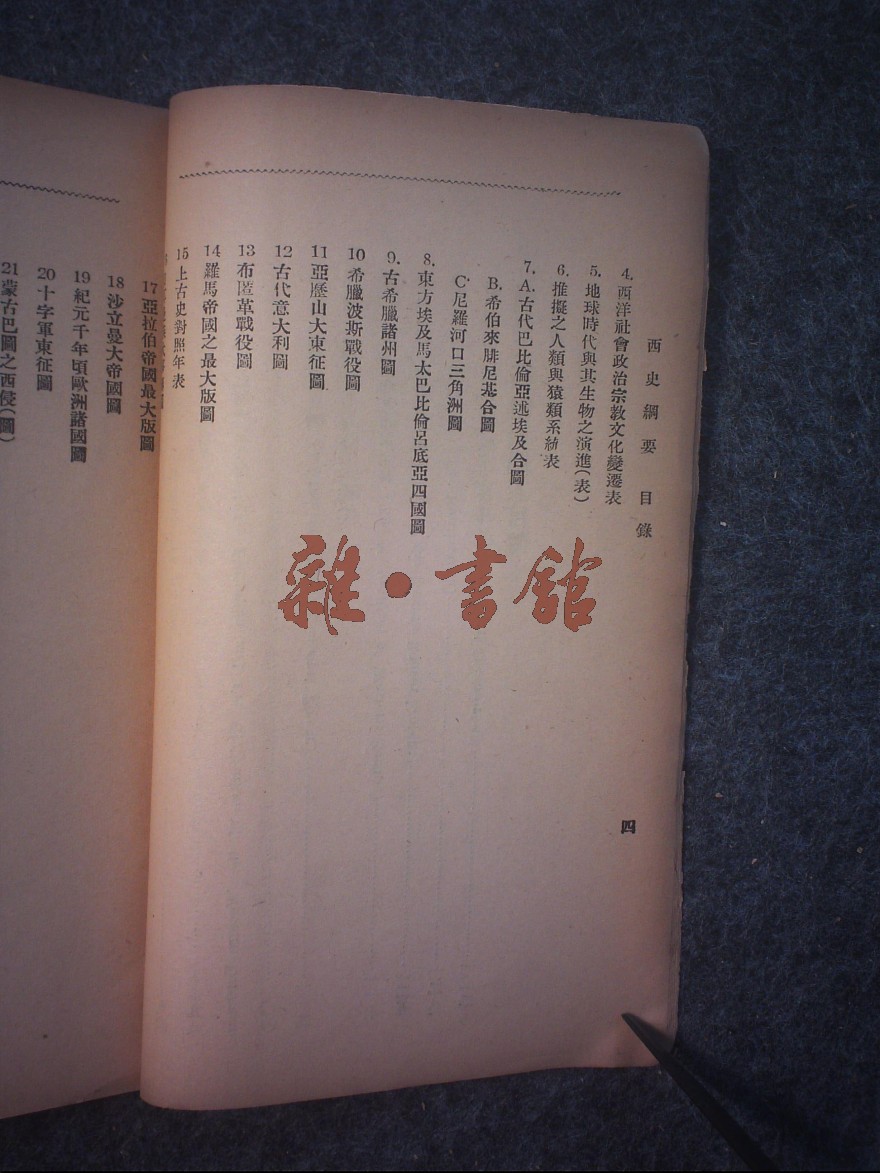 西史綱要 目錄
4. 西洋社會政治宗教文化變遷表
5. 地球時代與其生物之演進(表)
6. 推擬之人類與猿類系統表
7. A. 古代巴比倫亞述埃及合圖
B. 希伯來腓尼基合圖
C 尼羅河口三角洲圖
8. 東方埃及馬太巴比倫呂底亞四國圖
9. 古希臘諸州圖
10 希臘波斯戰役圖
11 亞歷山大東征圖
12 古代意大利圖
13 布匿革戰役圖
14 羅馬帝國之最大版圖
15 上古史對照年表
四
17 亞拉伯帝國最大版圖
18 沙立曼大帝國圖
19 紀元千年頃歐洲諸國圖
20 十字軍東征圖
21 蒙古巴圖之西侵(圖)
雜·書館